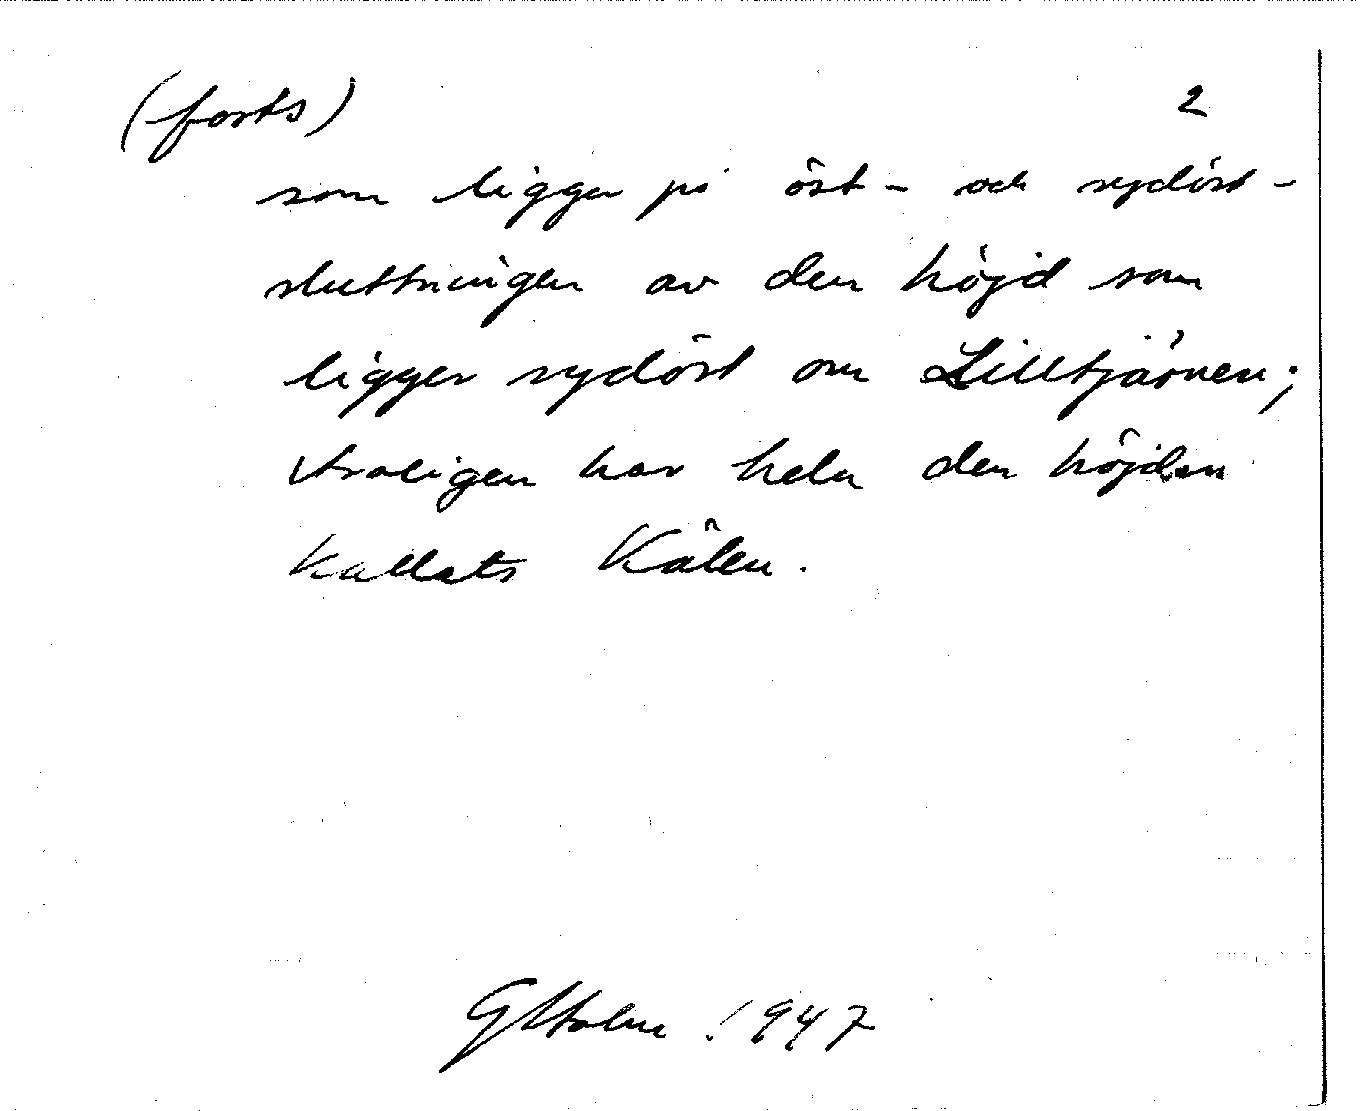 (forts) 2
som ligger på öst- och sydöst-
sluttningen av den höjd som
ligger sydöst om Lilltjärnen;
troligen har hela den höjden
kallats Kälen.
G Holm 1947